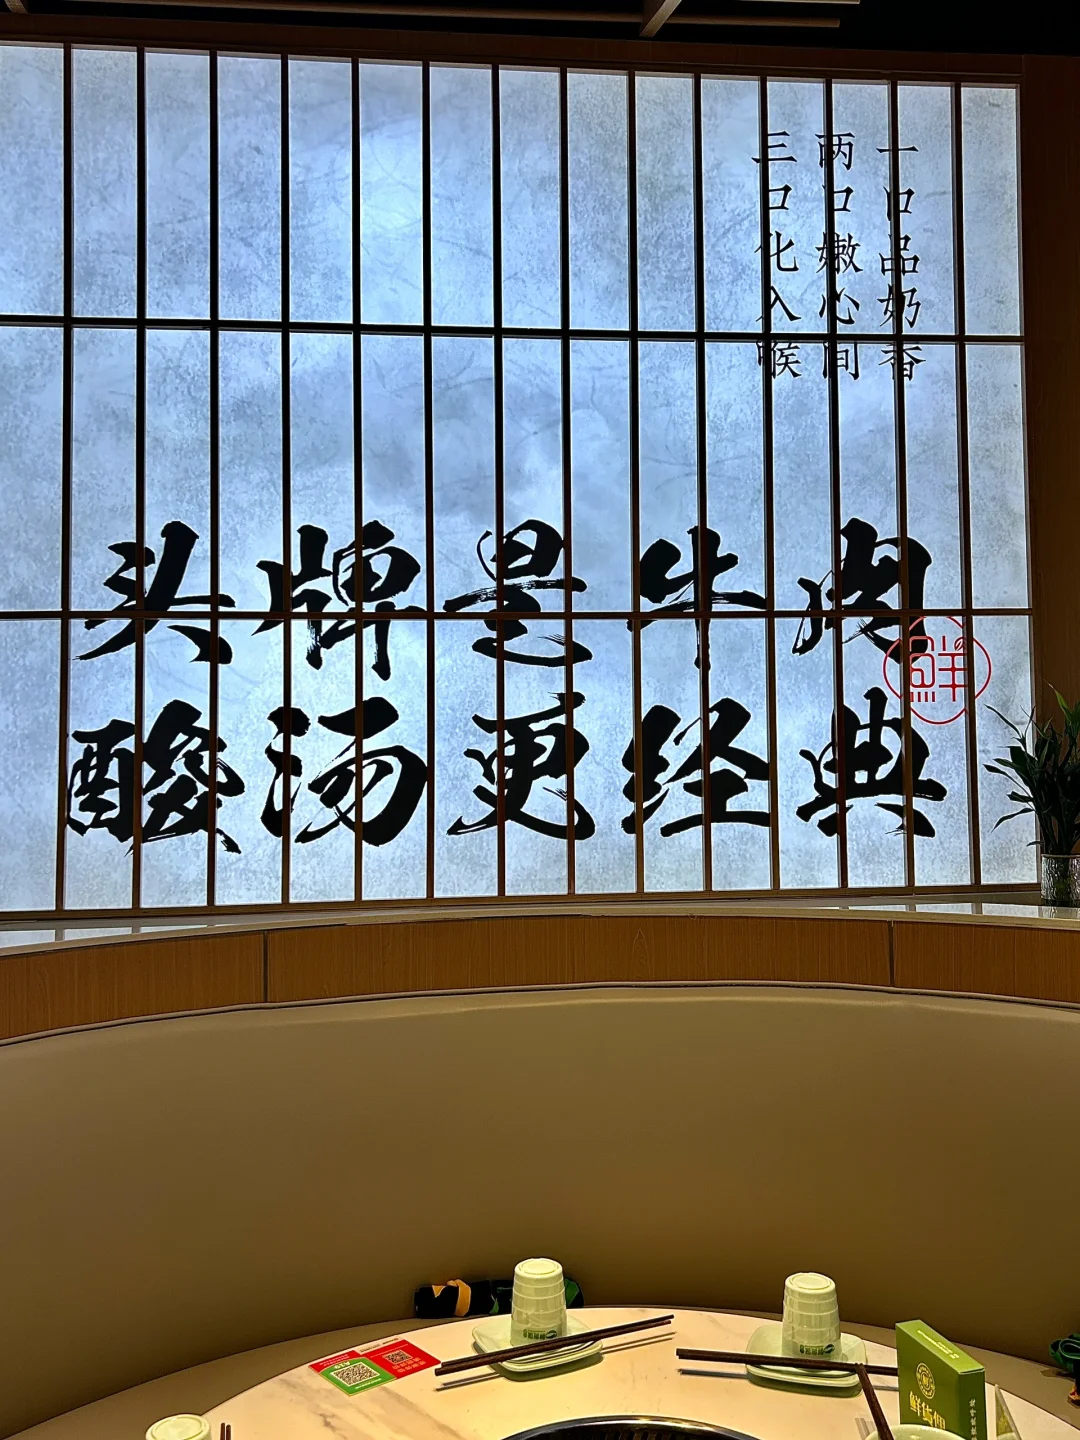 一口品奶香
两口嫩心间
三口化入喉
头牌是牛肉
酸汤更经典
鲜
A19